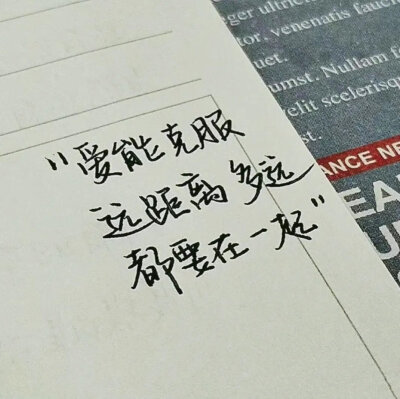 "爱能克服
远距离多远
都要在一起"
rger ultric
tor. venenatis fauci
uet.
umst. Nullam f
velit scelerisq
ANCE NE
EA
U